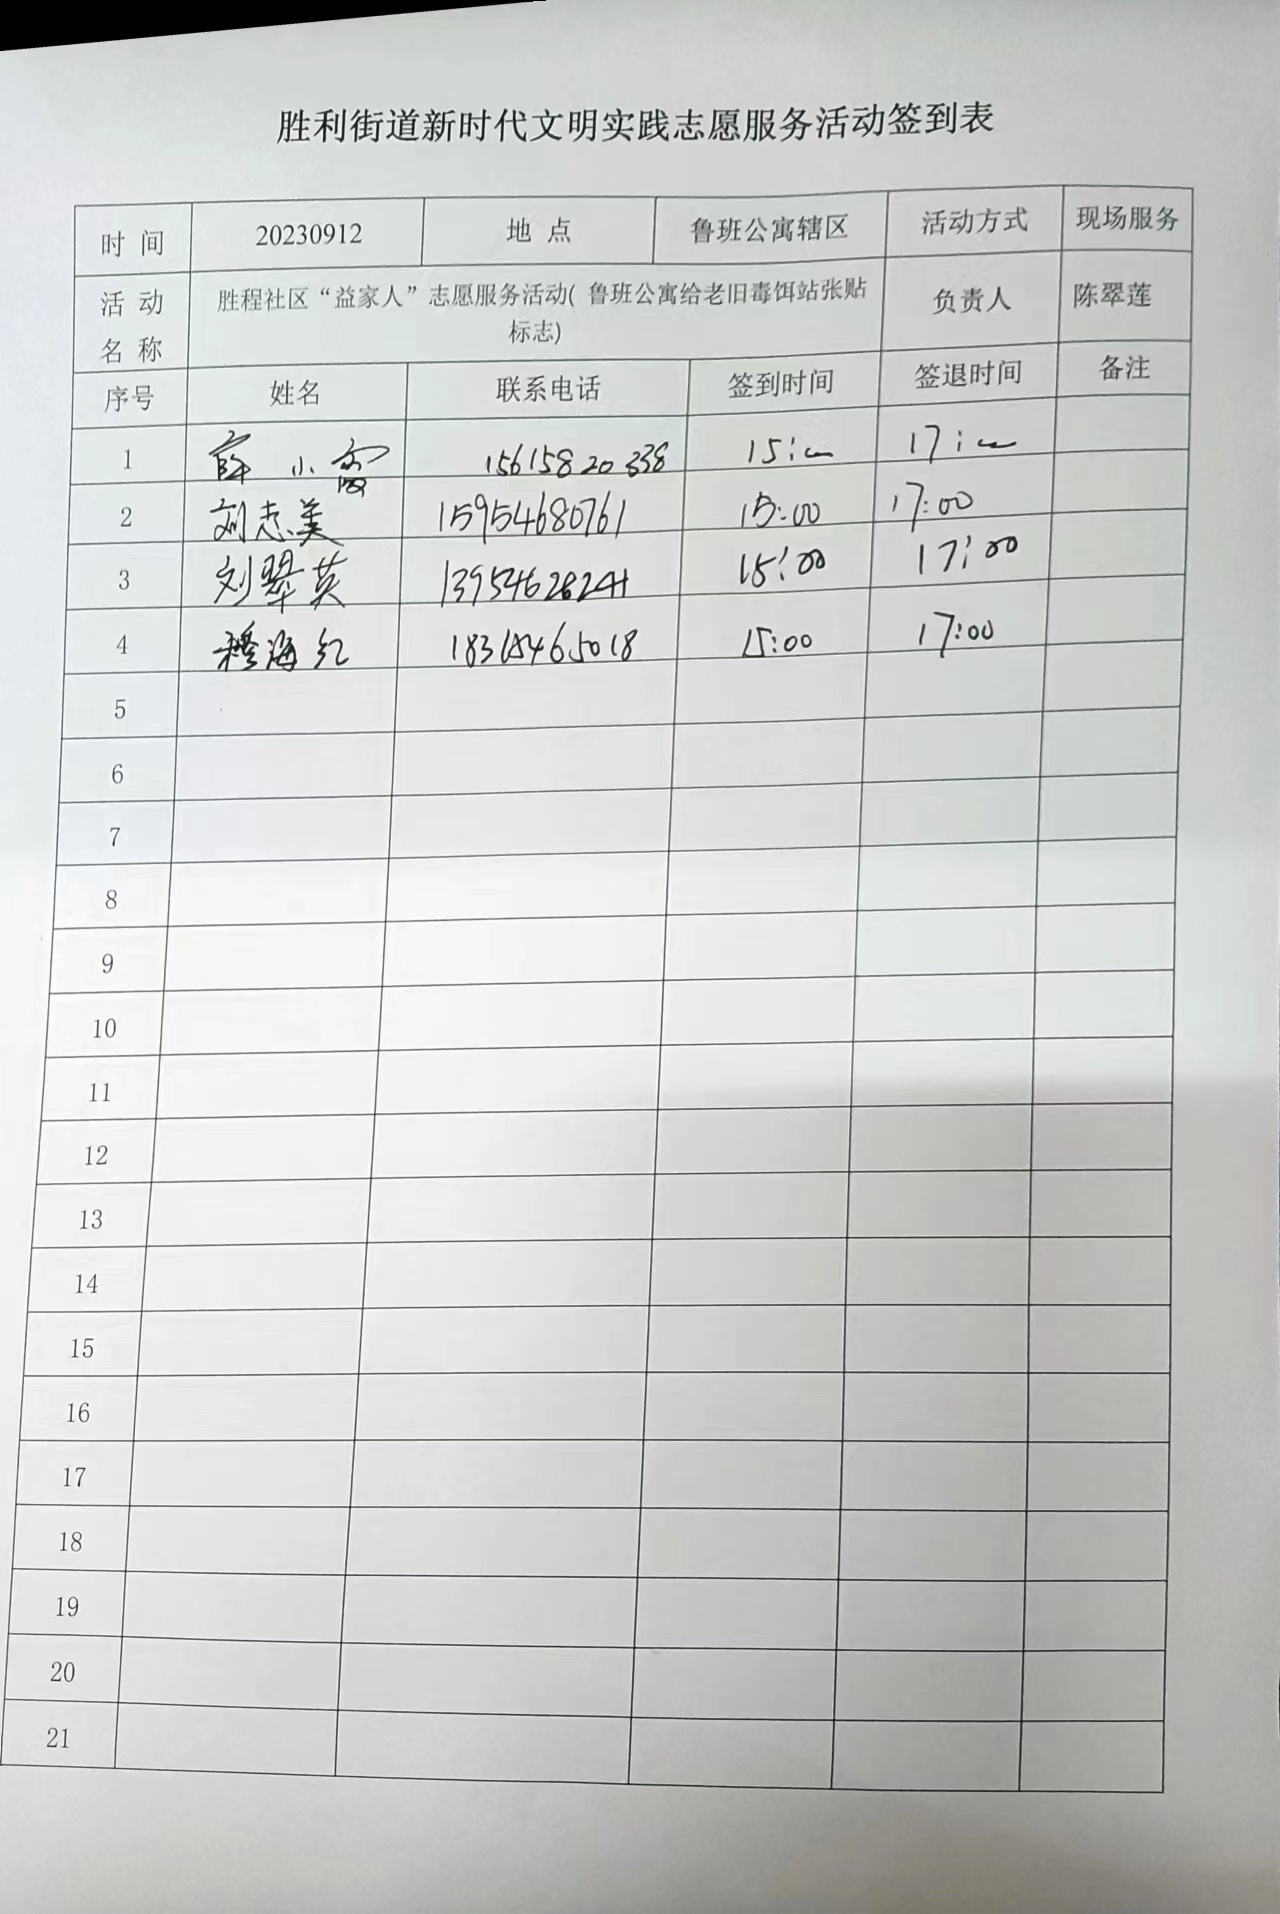 胜利街道新时代文明实践志愿服务活动签到表
时 间 20230912 地 点 鲁班公寓辖区 活动方式 现场服务
活 动 名 称 胜程社区“益家人”志愿服务活动( 鲁班公寓给老旧毒饵站张贴 负责人 陈翠莲
标志)
序号 姓名 联系电话 签到时间 签退时间 备注
1 薛小霞 15615820338 15:00 17:00
2 刘志美 15954680761 15:00 17:00
3 刘翠英 13954628241 15:00 17:00
4 穆海红 15:00 17:00
5
6
7
8
9
10
11
12
13
14
15
16
17
18
19
20
21